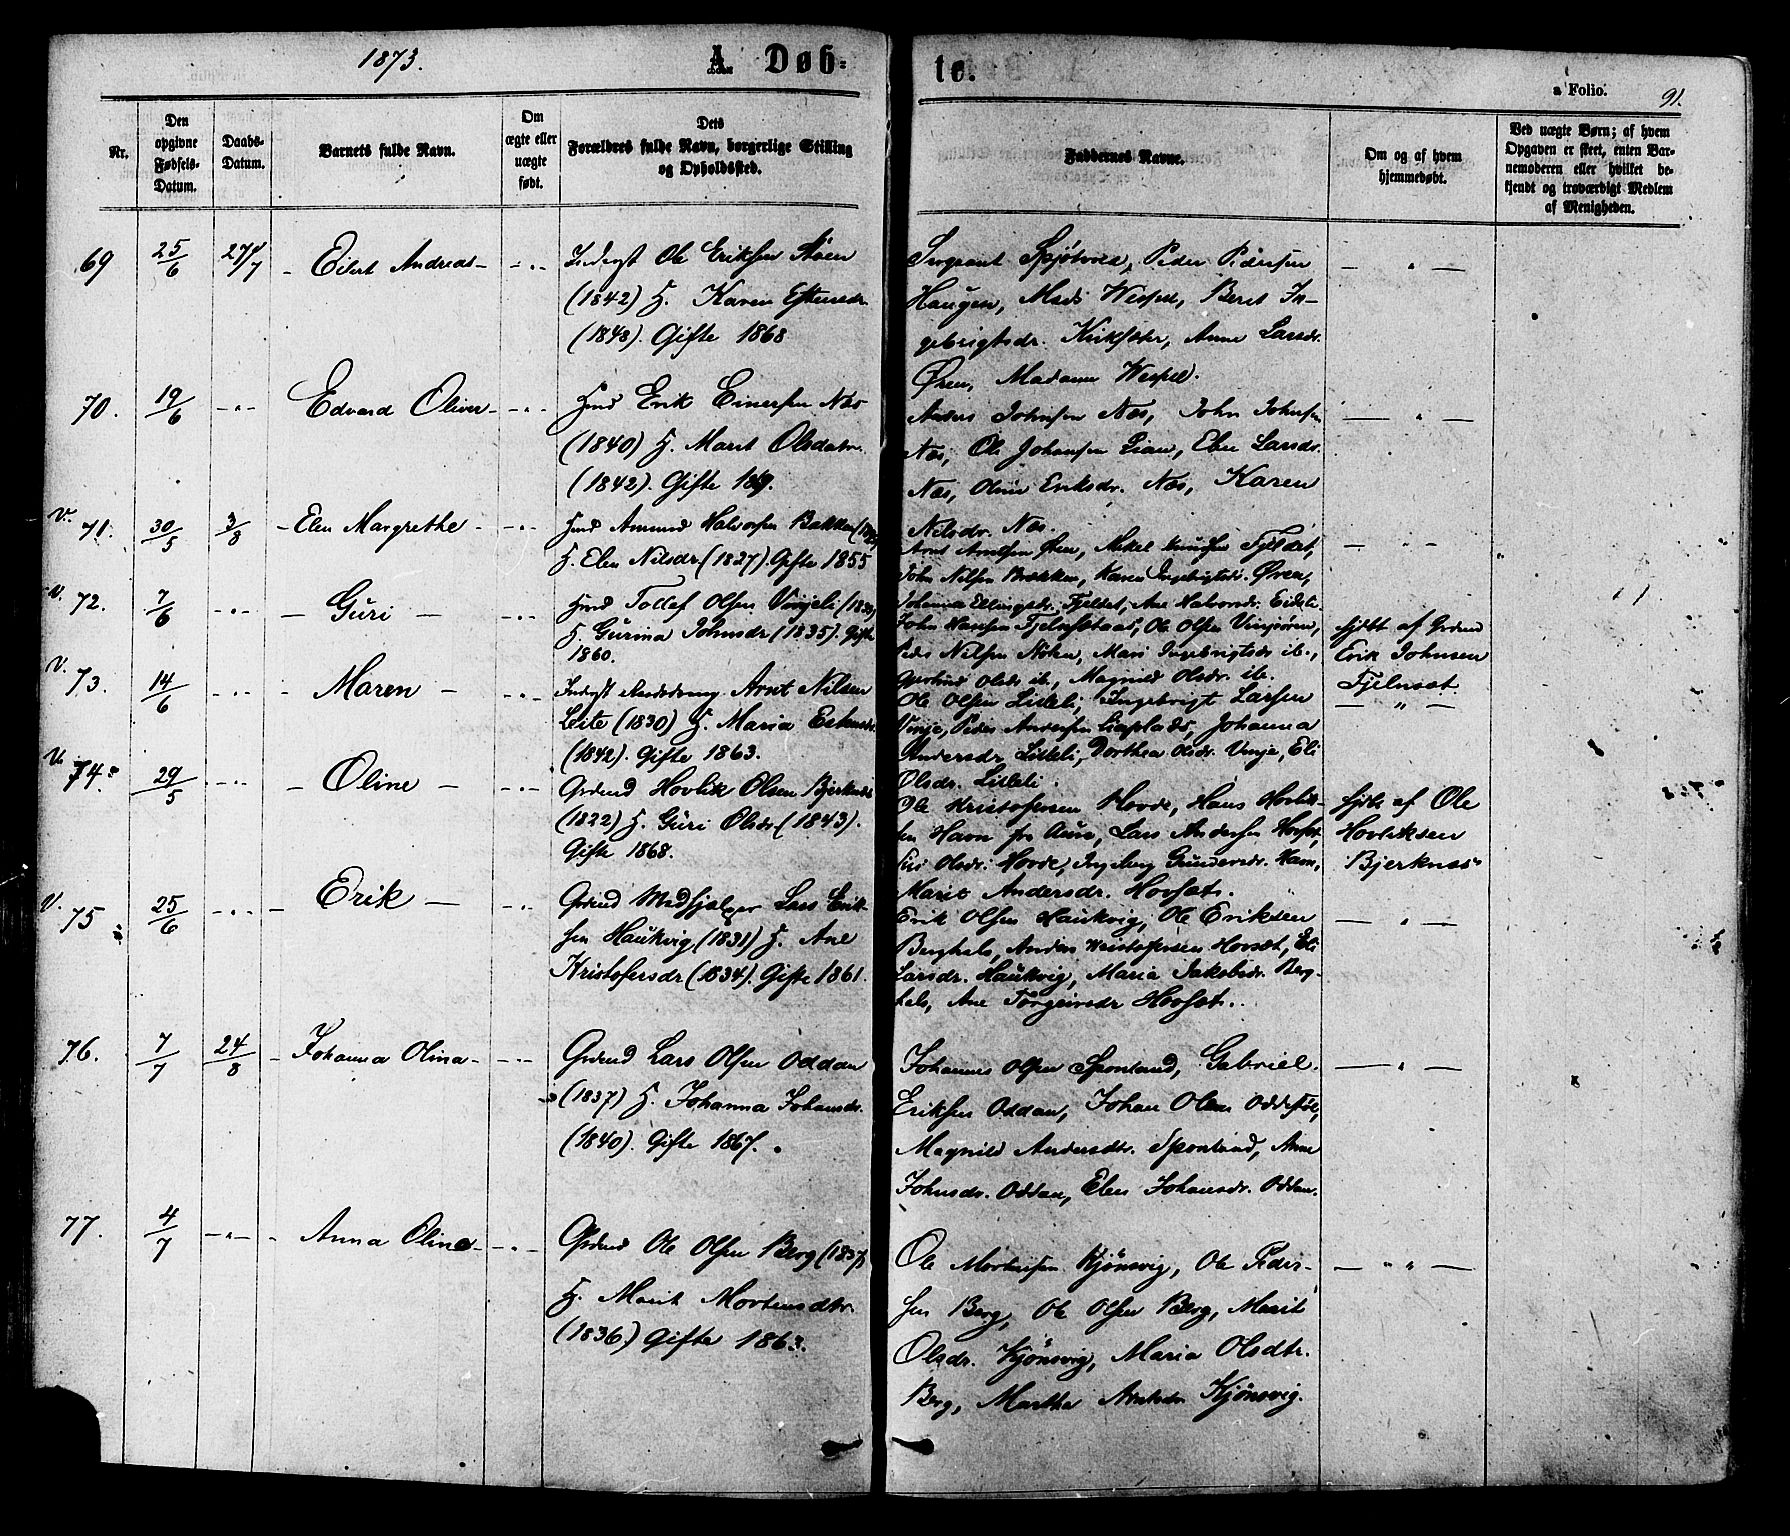 1873.
A. Døb-
te.
a Folio. 91.
Nr.
Den opgivne Fødsels-Datum.
Daabs-Datum.
Barnets fulde Navn.
Om ægte eller uægte født.
Dets Forældres fulde Navn, borgerlige Stilling og Opholdssted.
Faddernes Navne.
Om og af hvem hjemmedøbt.
Ved uægte Børn; af hvem Opgaven er skeet, enten Barnemoderen eller hvilket bekjendt og troværdigt Medlem af Menigheden.
69 25/6 27/7 - Eilert Andreas - - " -
Ole Eriksen
(1842) H. Karen Estensdr.
(1848). Gifte 1868
Sergeant Skjötvold, Peder Pedersen
Haugen, Mads Wessel, Berit In-
gebrigtsdr. Kirksæter, Anne Larsdr.
Øren, Madame Wessel.
— " —
70. 19/6 - " - Edvard Oliver - - " -
Hmd Erik Einersen Næs
(1840) H. Marit Olsdatr.
(1842). Gifte
Anders Johnsen Næs, John Johnsen
Næs, Ole Johansen Lian, Elen Larsdr.
Næs, Oline Eriksdr. Næs, Karen
Nilsdr. Næs.
— " —
V. 71. 30/5 3/8 - Elen Margrethe - - " -
Hmd Amund Halvorsen Bakken
H. Elen Nilsdr. (1827). Gifte 1855
Arnt Arntsen Øren, Mikel Knutsen Fjeldet,
John Nilsen Brækken, Karen Ingebrigtsdr. Øren,
Johanna Ellingsdr. Fjeldet, Ane Halvorsdr. Eidsli.
— " —
V. 72. 7/6 - " - - Guri - - " -
Hmd Tollef Olsen Vinjeli
H. Gurina Johnsdr (1835). Gifte
1860.
John Hansen Fjelnsetaas, Ole Olsen Vinjeören,
Peder Nilsen Nöken, Mari Ingebrigtsdr ib.,
Gjertrud Olsdr ib., Magnild Olsdr. ib.
hjdbt af Grdmd
Erik Johnsen
Fjelnset.
V. 73. 14/6 - " - - Maren - - " -
Arnt Nilsen
Leite (1830) H. Maria
(1842). Gifte 1863.
Ole Olsen Lilleli, Ingebrigt Larsen
Vinje, Peder Andersen, Johanna
Andersdr. Lilleli, Dorthea Olsdr. Vinje, Eli
Olsdr. Lilleli.
— " —
V. 74. 29/5 - " - - Oline - - " -
Grdmd Hovlik Olsen Bjerknes
(1822) H. Guri Olsdr (1843).
Gifte 1868.
Ole Kristofersen Hovde, Hans Hovlik-
sen Havn fra Aure, Lars Andersen Hovset,
Olsdr. Hovde, Ingeborg Gundersdr. Havn,
Marit Andersdr. Hovset.
hjdb. af Ole
Hovliksen
Bjerknes
V. 75 25/6 - " - - Erik - - " -
Grdmd Medhjælper Lars Erik-
sen Haukvig (1831) H. Ane
Kristofersdr (1834). Gifte 1861.
Erik Olsen Haukvig, Ole Eriksen
Berghals, Anders Kristofersen Hovset, Eli
Larsdr. Haukvig, Maria Jakobsdr. Berg-
hals, Ane Torgeirsdr Hovset.
— " —
76. 7/7 24/8 - Johanna Olina - - " -
Grdmd Lars Olsen Oddan
(1837) H. Johanna Johansdr.
(1840). Gifte 1867.
Johannes Olsen Sponland, Gabriel
Eriksen Oddan, Johan Olsen
Magnild Andersdtr. Sponland, Anne
Johnsdr. Oddan, Elen Johansdr. Oddan.
— " —
77. 4/7 - " - - Anna Oline - - " -
Grdmd Ole Olsen Berg (1837)
H. Marit Mortensdtr.
(1836) Gifte 1863.
Ole Mortensen Kjönsvig, Ole Peder-
sen Berg, Ole Olsen Berg, Marit
Olsdr. Kjönsvig, Maria Olsdtr.
Berg, Martha Arntsdr Kjönsvig.
— " " —